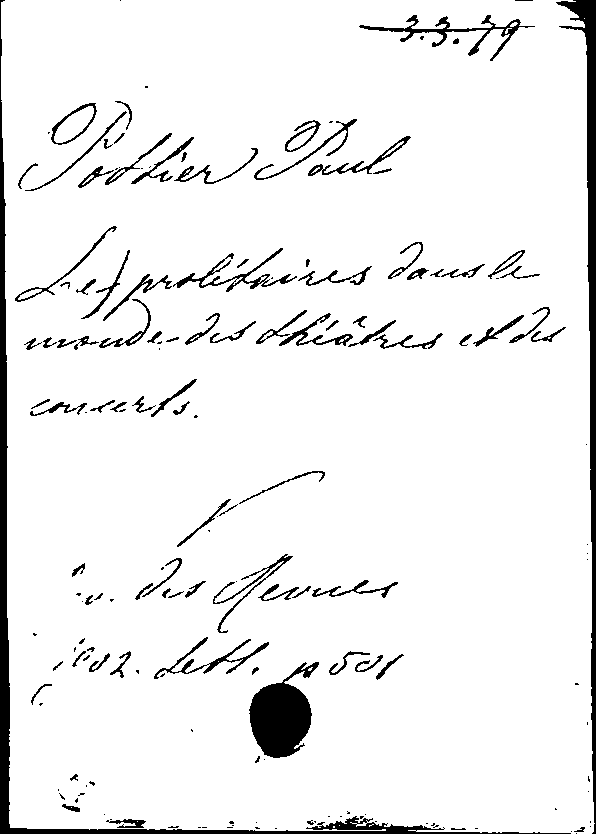 3.3.79
Pottier Paul
Les prolétaires dans le
monde des théâtres et des
concerts.
v. des Revues
1902. Sett. p 501